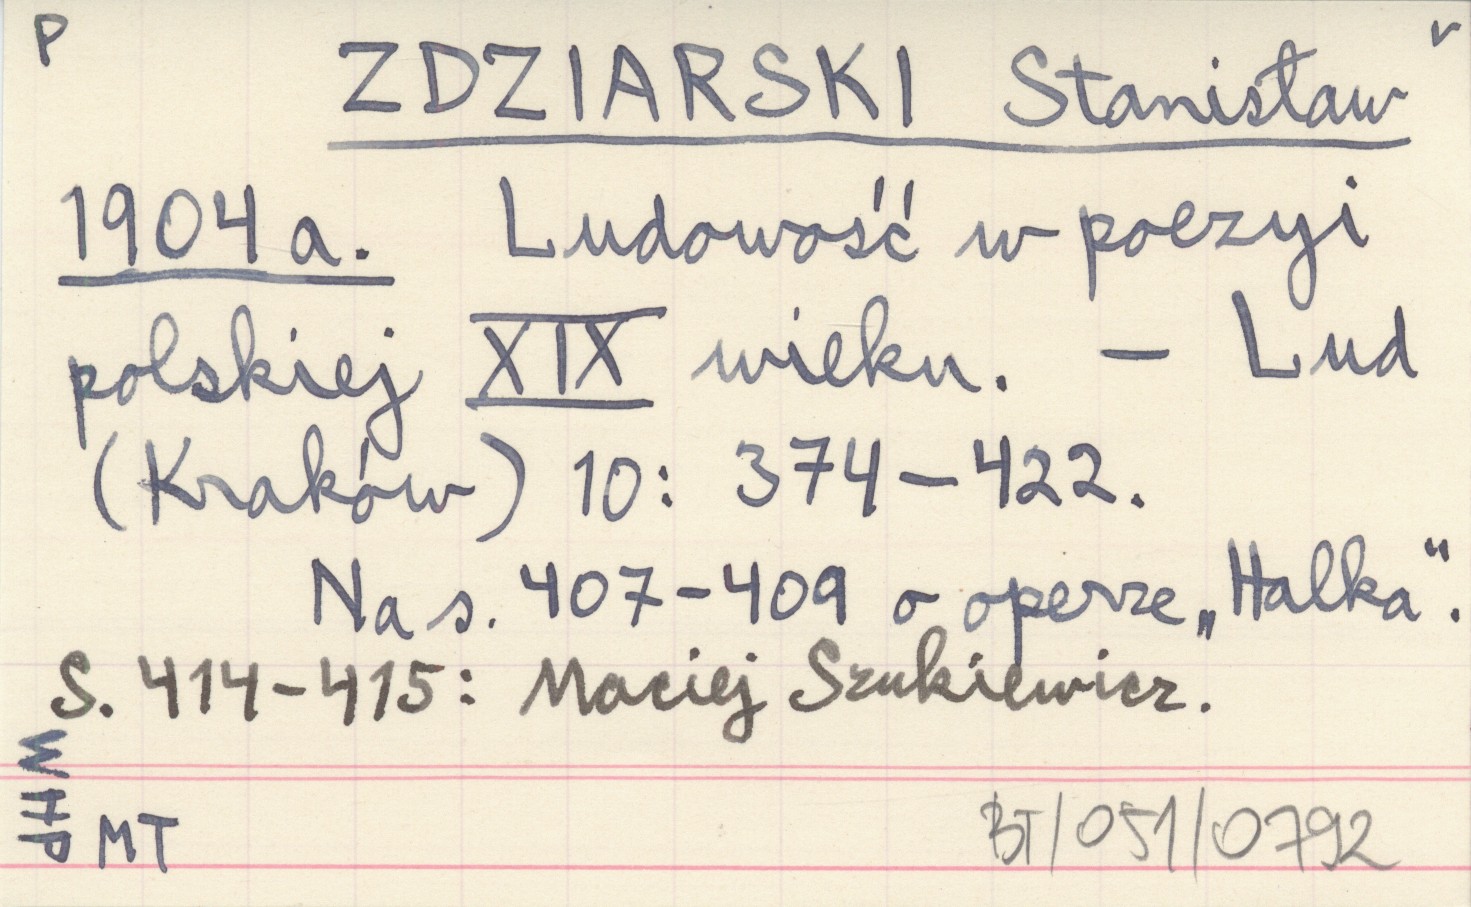 P
v
ZDZIARSKI Stanisław
1904 a. Ludowość w poezyi
polskiej XIX wieku. – Lud
(Kraków) 10: 374–422.
Na s. 407–409 o operze „Halka".
S. 414–415: Maciej Szukiewicz.
MT
BT/051/0792